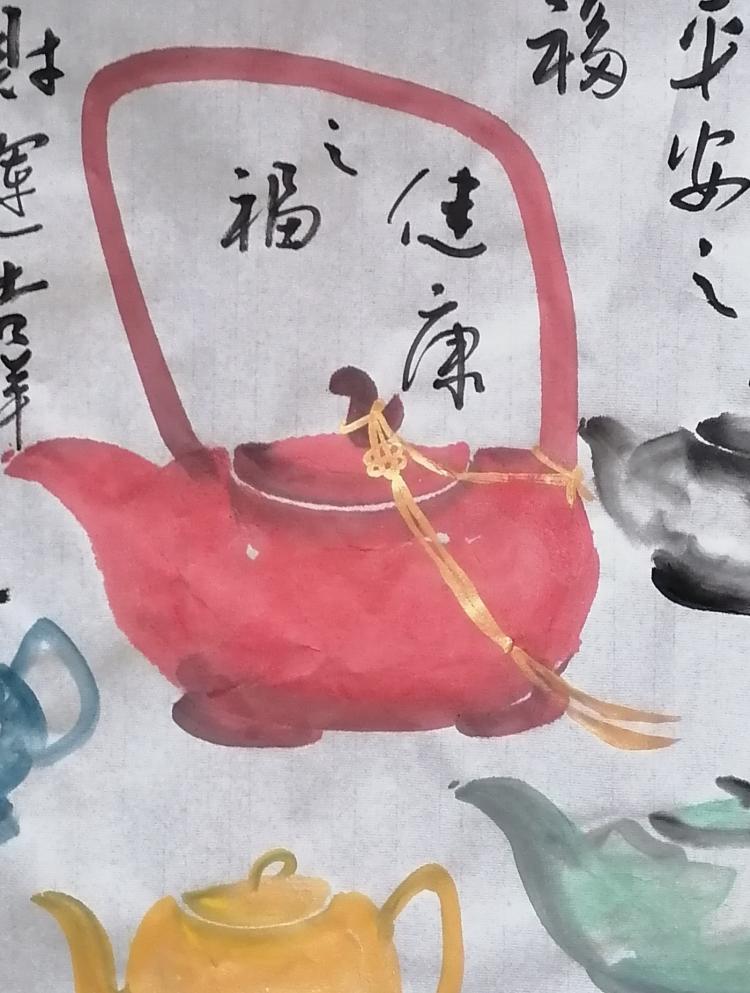 平安之
福
健康
之
福
財運吉祥